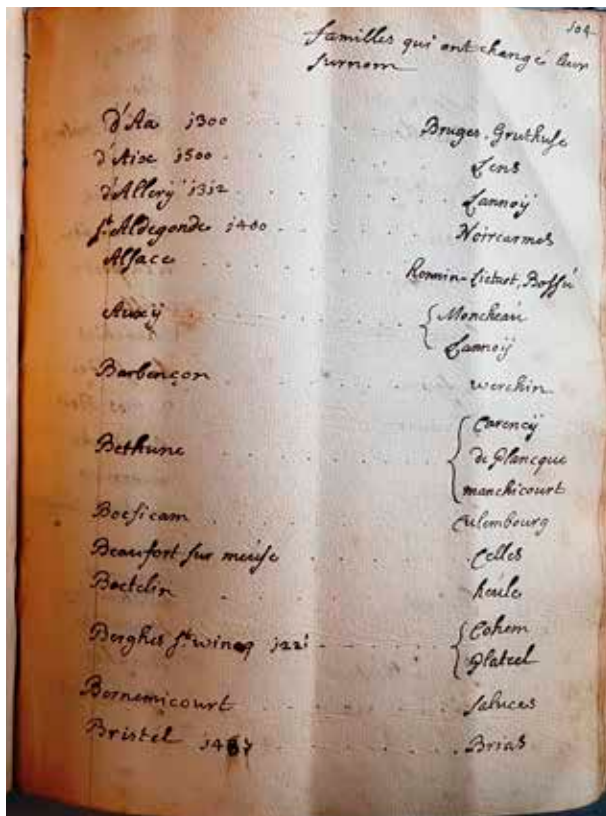 504
familles qui ont changé leur
surnom
d'Aa 1300 . . . . . Bruges, Gruthuse
d'Aix 1500 . . . . . Lens
d'Allerÿ 1312 . . . . . Lannoÿ
st. Aldegonde 1400 . . . . . Noircarmes
Alsace . . . . . -Lietart, Bossú
Auxÿ . . . . . { Moncheau
Lannoÿ
Barbençon . . . . . werchin
Carencÿ
Bethune . . . . . { de Plancque
manchicourt
Boesicam . . . . . Culembourg
Beaufort sur meuse . . . . . Celles
Boetelin . . . . . heule
Berghes st. winoq . . . . . { Cohem
Plateel
Bornemicourt . . . . . saluces
Bristel . . . . . Brias